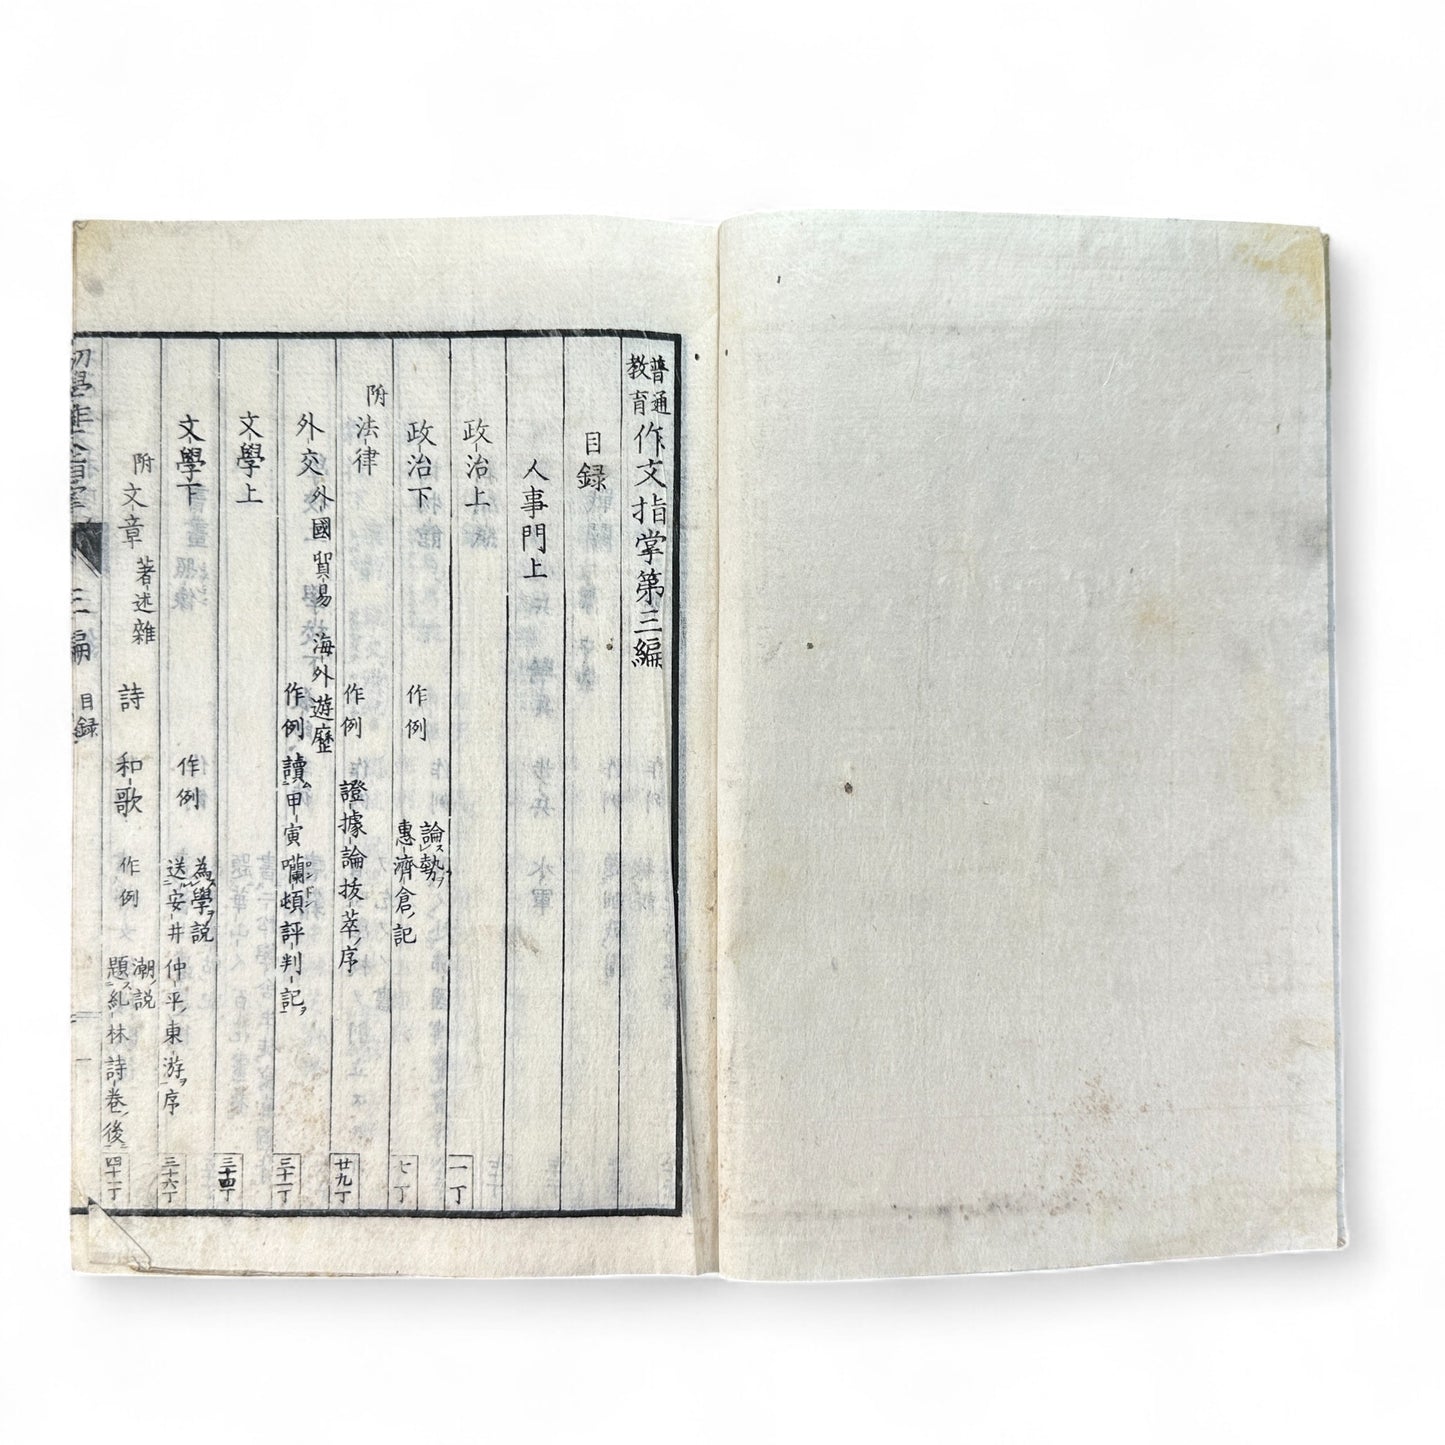 普通教育作文指掌第三編
目録
人事門上
政治上 一丁
政治下 作例 論勢 惠濟倉ノ記 七丁
附法律 作例 證據論拔萃ノ序 廿九丁
外交 外國貿易 海外遊歷 作例 讀甲寅嚨頓評判記 三十一丁
文學上 三十四丁
文學下 作例 為學説 送安井仲平東游序 三十六丁
附文章 著述雜 詩 和歌 作例 潮ノ説 題乩林詩卷ノ後 四十一丁
三編 目録